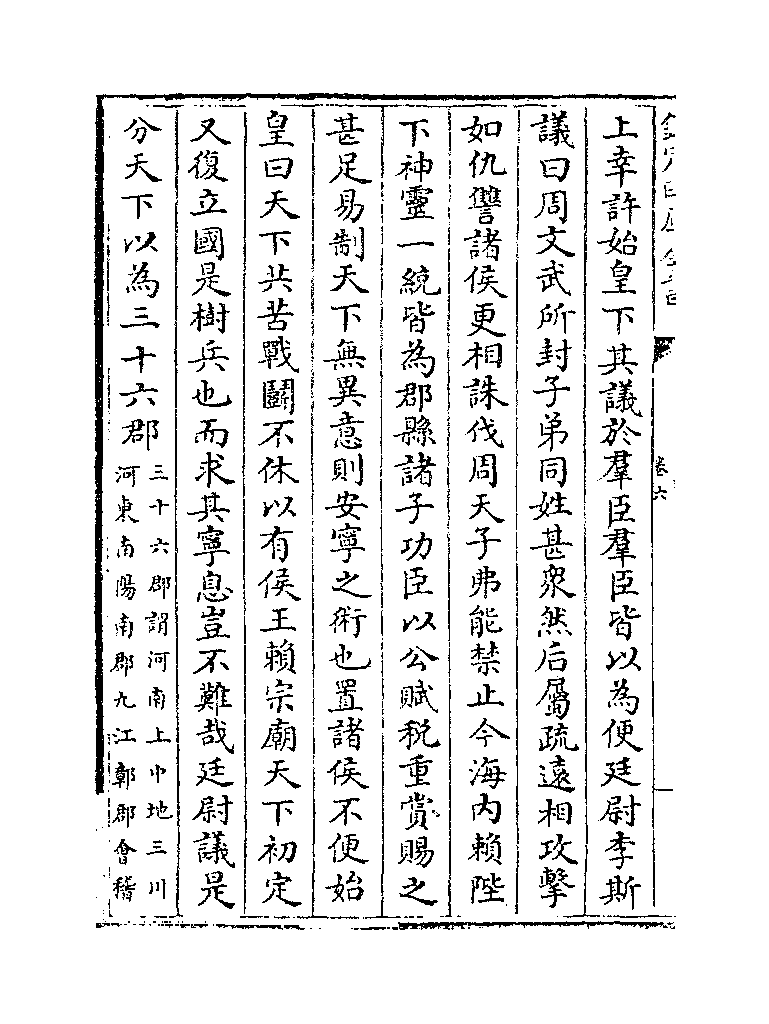 上幸許始皇下其議於羣臣羣臣皆以為便廷尉李斯
議曰周文武所封子弟同姓甚衆然后屬疏遠相攻擊
如仇讐諸侯更相誅伐周天子弗能禁止今海内賴陛
下神靈一統皆為郡縣諸子功臣以公賦税重賞賜之
甚足易制天下無異意則安寧之術也置諸侯不便始
皇曰天下共苦戰鬭不休以有侯王賴宗廟天下初定
又復立國是樹兵也而求其寧息豈不難哉廷尉議是
分天下以為三十六郡
三十六郡謂河南上中地三川
河東南陽南郡九江鄣郡會稽
卷六